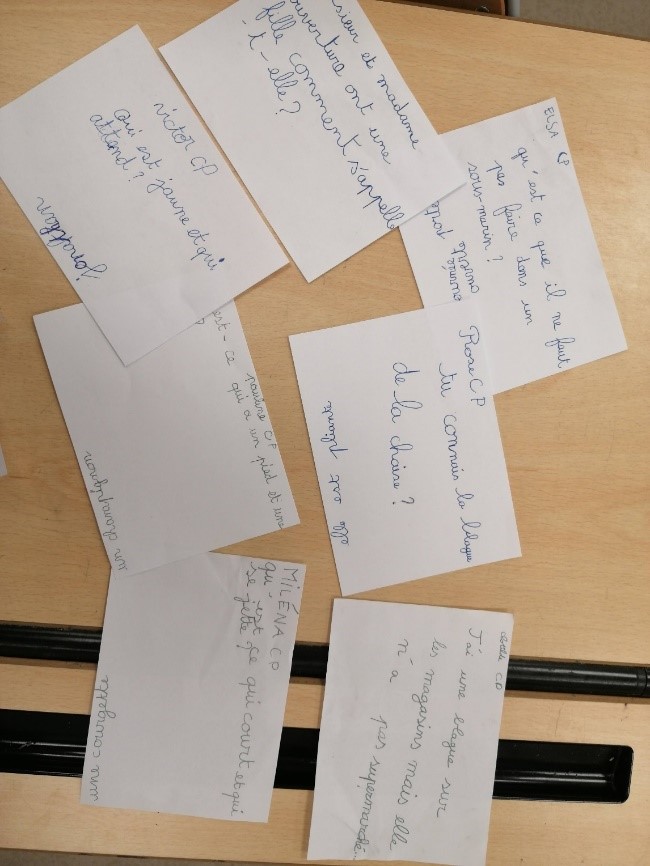 sieur et madame
ouverture ont une
fille comment s'appelle
-t-elle?
victor CP
Qui est jaune et qui
attend?
jonathan
ELSA CP
qu'est ce que il ne faut
pas faire dans un
sous-marin ?
Rose CP
tu connais la blague
de la chaise ?
elle est pliante
pauline CP
est-ce qui a un pied et une
un champignon
MILÉNA CP
qu'est ce qui court et qui
se jette ?
une courgette
CP
J'ai une blague sur
les magasins mais elle
n'a pas supermarché.